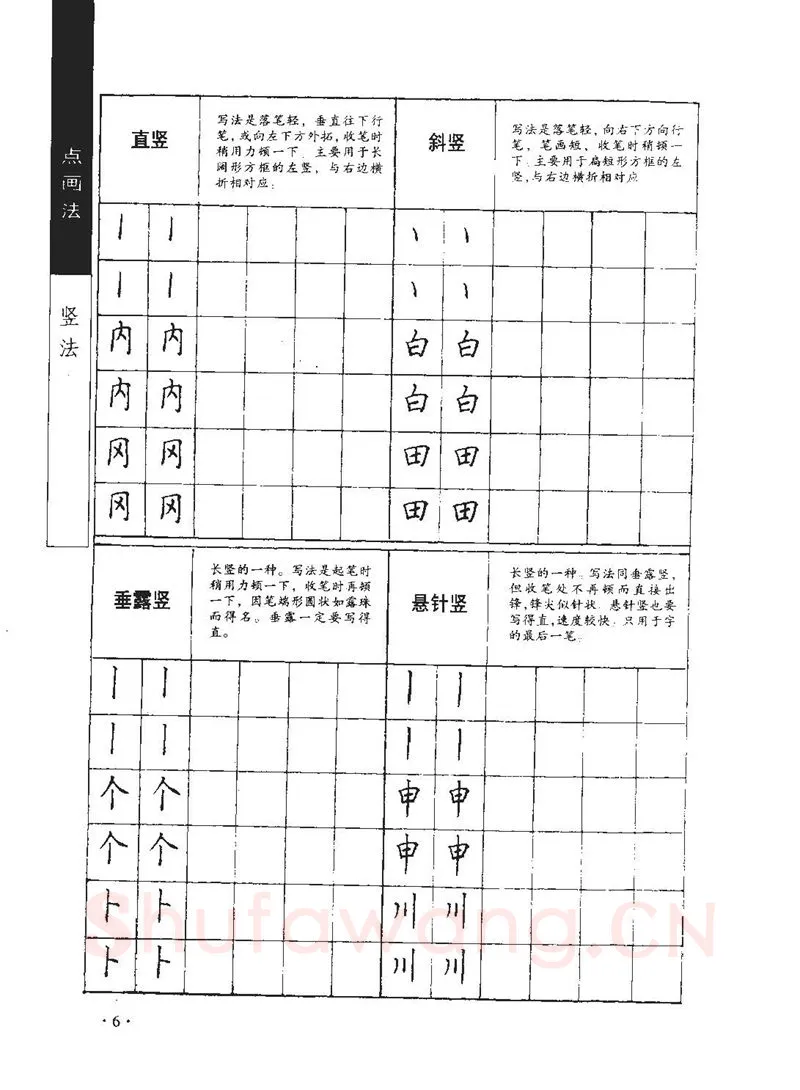 点画法
竖法
直竖
写法是落笔轻，垂直往下行
笔，或向左下方外拓，收笔时
稍用力顿一下。主要用于长
阔形方框的左竖，与右边横
折相对应。
斜竖
写法是落笔轻，向右下方向行
笔，笔画短、收笔时稍顿一
下。主要用于扁短形方框的左
竖，与右边横折相对应
丨 丨 丨 丨
丨 丨 丨 丨
内 内 白 白
内 内 白 白
冈 冈 田 田
冈 冈 田 田
垂露竖
长竖的一种。写法是起笔时
稍用力顿一下，收笔时再顿
一下，因笔端形圆状如露珠
而得名。垂露一定要写得
直。
悬针竖
长竖的一种。写法同垂露竖，
但收笔处不再顿而直接出
锋，锋尖似针状。悬针竖也要
写得直，速度较快。只用于字
的最后一笔。
丨 丨 丨 丨
丨 丨 丨 丨
个 个 申 申
个 个 申 申
卜 卜 川 川
卜 卜 川 川
Shufawang.CN
·6·